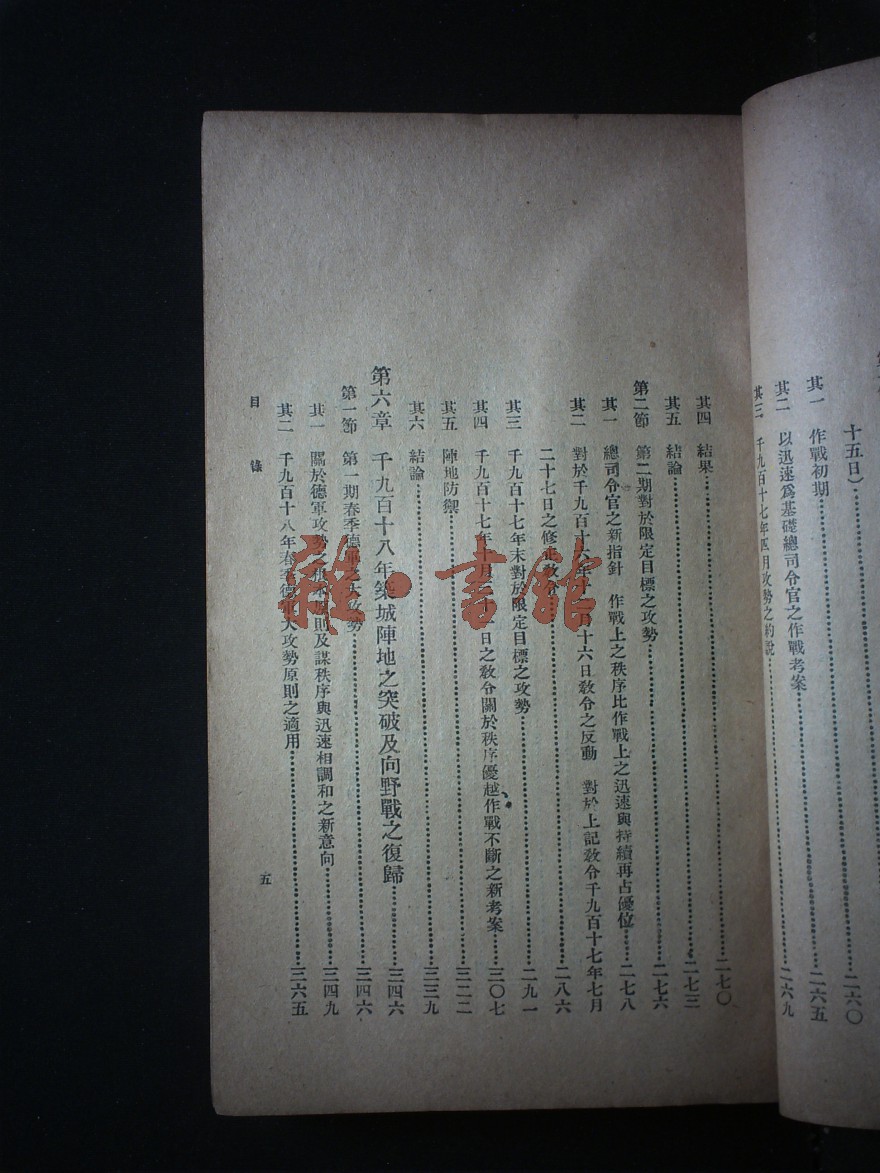 十五日）……二六〇
其一 作戰初期……二六五
其二 以迅速爲基礎總司令官之作戰考案
其三 千九百十七年四月攻勢之約說……二六九
其四 結果……二七〇
其五 結論……二七三
第二節 第二期對於限定目標之攻勢……二七六
其一 總司令官之新指針 作戰上之秩序比作戰上之迅速與持續再占優位……二七八
其二 對於千九百十六年十二月十六日敎令之反動 對於上記敎令千九百十七年七月
二十七日之修正敎令……二八六
其三 千九百十七年末對於限定目標之攻勢……二九一
其四 千九百十七年十月三十一日之敎令關於秩序優越作戰不斷之新考案……三〇七
其五 陣地防禦……三二二
其六 結論……三三九
第六章 千九百十八年築城陣地之突破及向野戰之復歸……三四六
第一節 第一期春季德軍之大攻勢……三四六
其一 關於德軍攻勢之根本原則及謀秩序與迅速相調和之新意向……三四九
其二 千九百十八年春季德軍大攻勢原則之適用……三六五
目錄
五
雜·書館